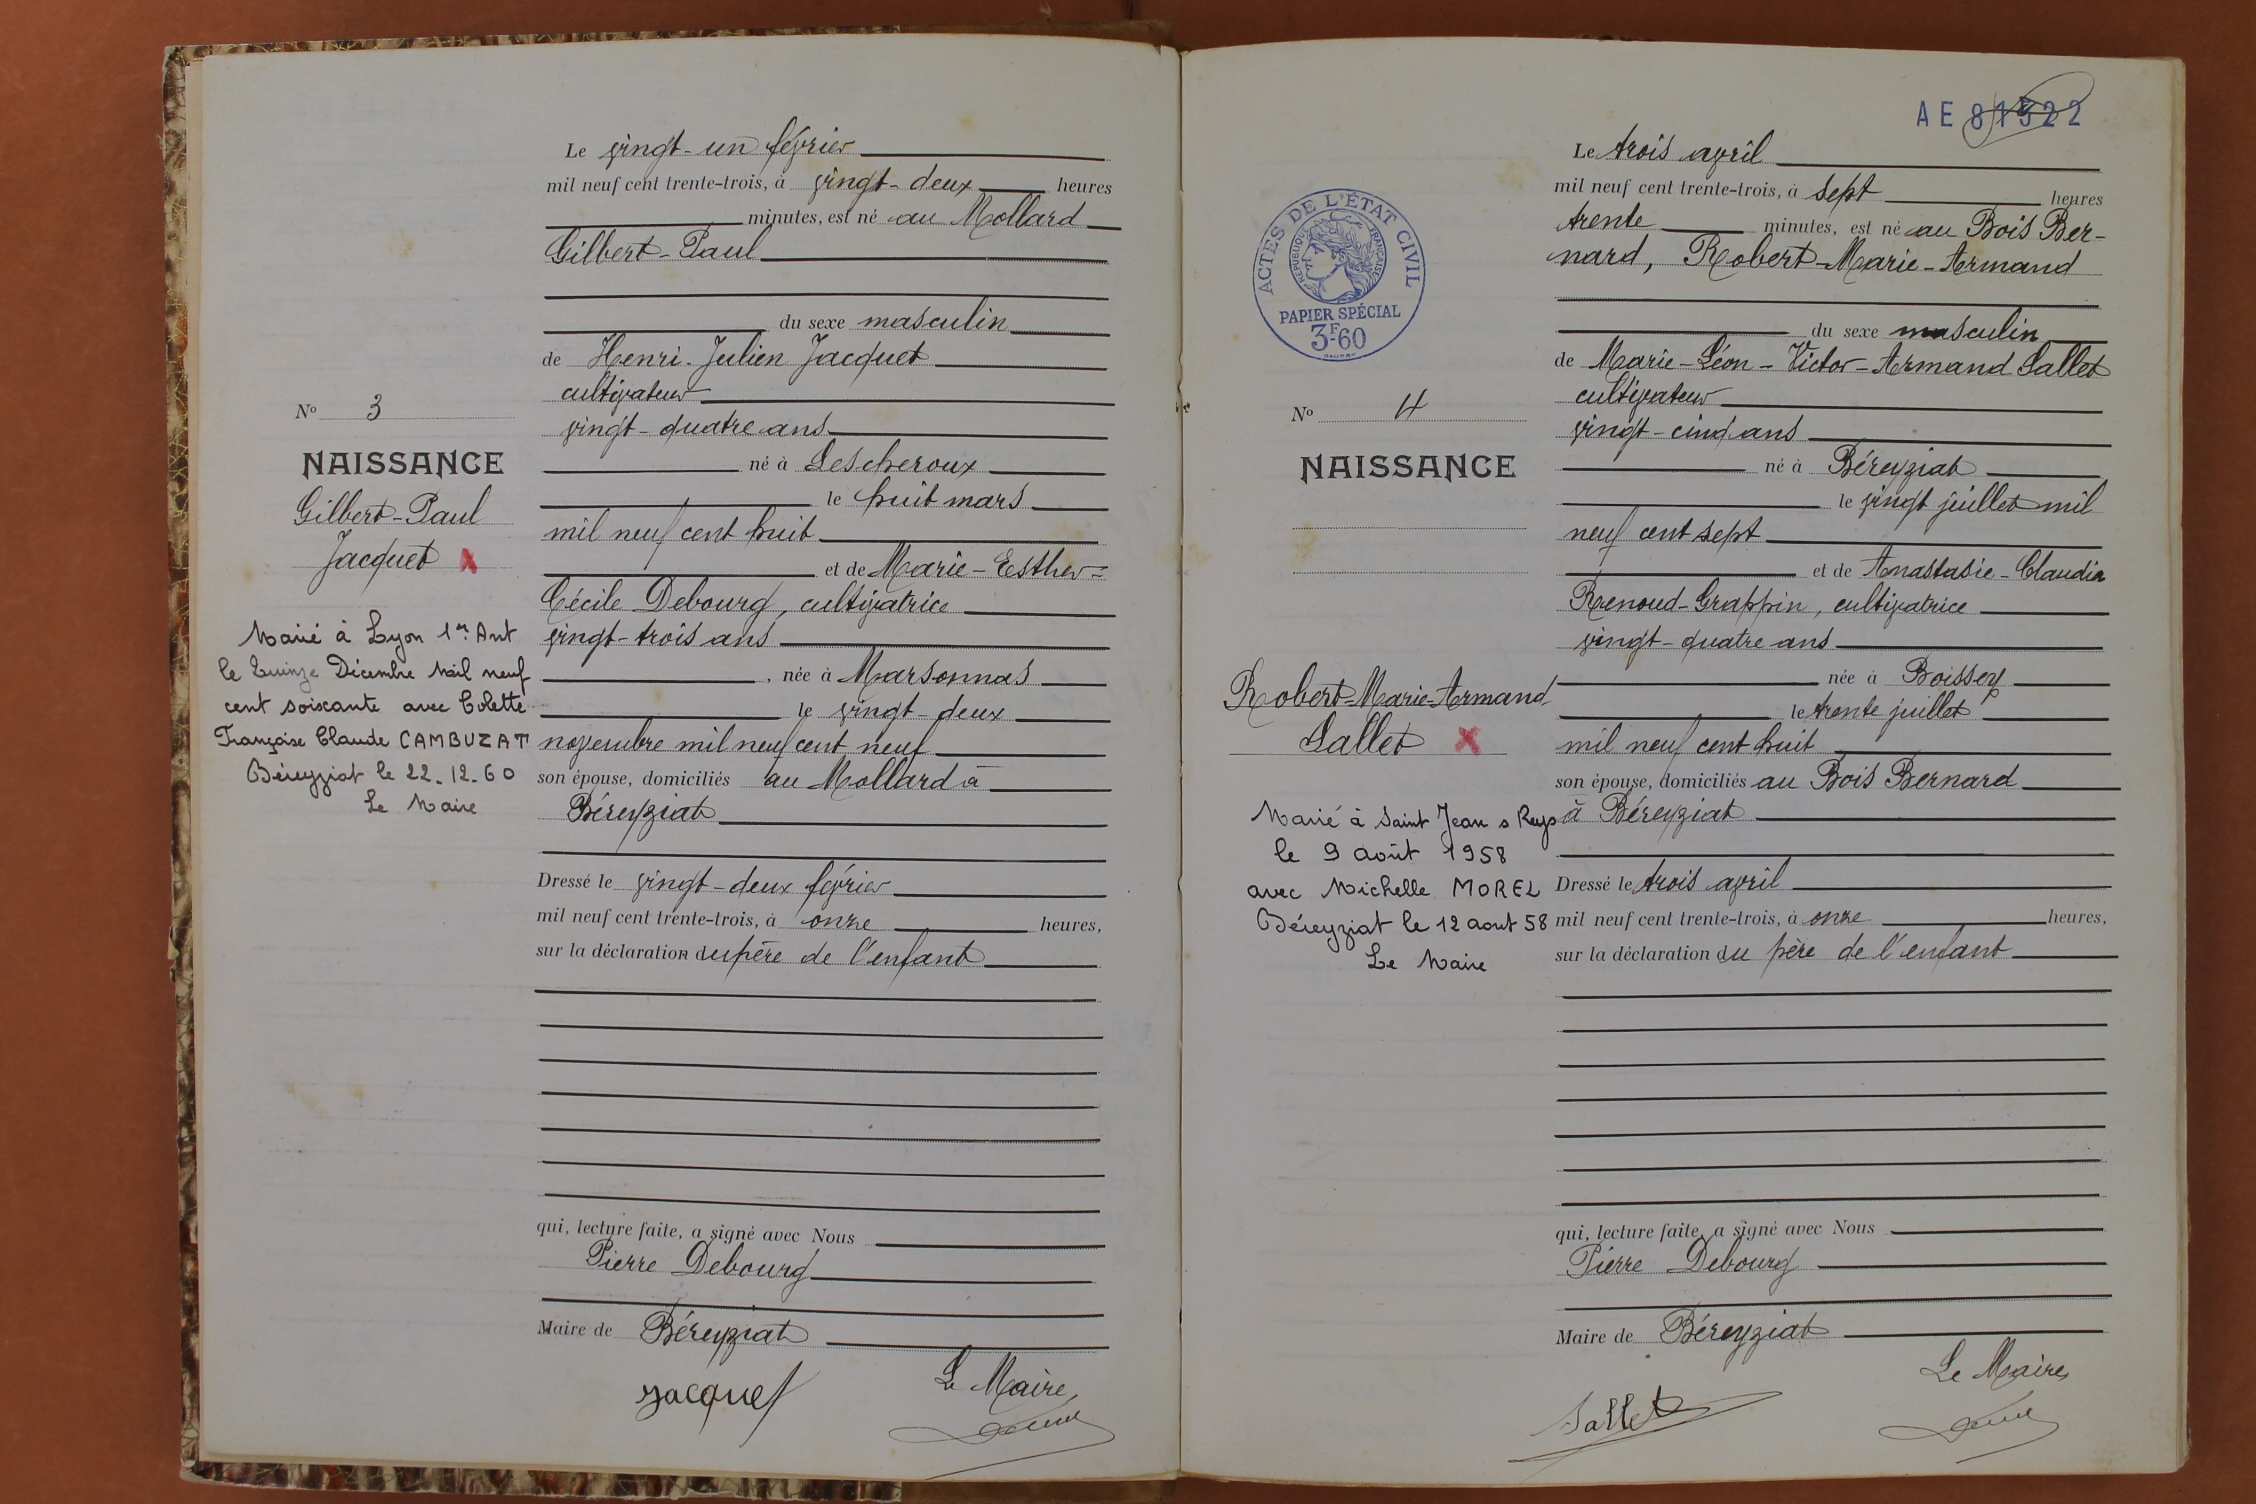 Le vingt-un février
mil neuf cent trente-trois, à vingt-deux heures
minutes, est né au Mollard
Gilbert-Paul
du sexe masculin
de Henri-Julien Jacquet
cultivateur
vingt-quatre ans
né à Lescheroux
le huit mars
mil neuf cent huit
et de Marie-Esther-
Cécile Debourg, cultivatrice
vingt-trois ans
, née à Marsonnas
le vingt-deux
novembre mil neuf cent neuf
son épouse, domiciliés au Mollard à
Béreyziat
Dressé le vingt-deux février
mil neuf cent trente-trois, à onze heures,
sur la déclaration du père de l'enfant
qui, lecture faite, a signé avec Nous
Pierre Debourg
Maire de Béreyziat
Jacquet
Le Maire,
N° 3
NAISSANCE
Gilbert-Paul
Jacquet X
Marié à Lyon 1er Arrt
le Quinze Décembre Mil neuf
cent soixante avec Colette
Françoise Claude CAMBUZAT
Béreyziat le 22-12-60
Le Maire
AE 81522
ACTES DE L'ÉTAT CIVIL
RÉPUBLIQUE FRANÇAISE
PAPIER SPÉCIAL
3F-60
N° 4
NAISSANCE
Robert-Marie-Armand
Sallet X
Marié à Saint Jean s Reys
le 9 août 1958
avec Michelle MOREL
Béreyziat le 12 aout 58
Le Maire
Le trois avril
mil neuf cent trente-trois, à sept heures
trente minutes, est né au Bois Ber-
nard, Robert-Marie-Armand
du sexe masculin
de Marie-Léon-Victor-Armand Sallet
cultivateur
vingt-cinq ans
né à Béreyziat
le vingt juillet mil
neuf cent sept
et de Anastasie-Claudia
Renoud-Grappin, cultivatrice
vingt-quatre ans
née à Boissey
le trente juillet
mil neuf cent huit
son épouse, domiciliés au Bois Bernard
à Béreyziat
Dressé le trois avril
mil neuf cent trente-trois, à onze heures,
sur la déclaration du père de l'enfant
qui, lecture faite, a signé avec Nous
Pierre Debourg
Maire de Béreyziat
Sallet
Le Maire,